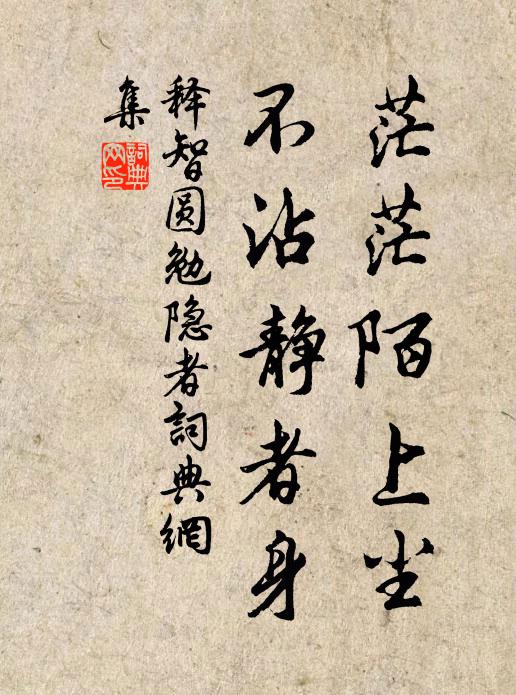 茫茫陌上尘
不沾静者身
释智圆勉隐者詞典網
集
詞典网印